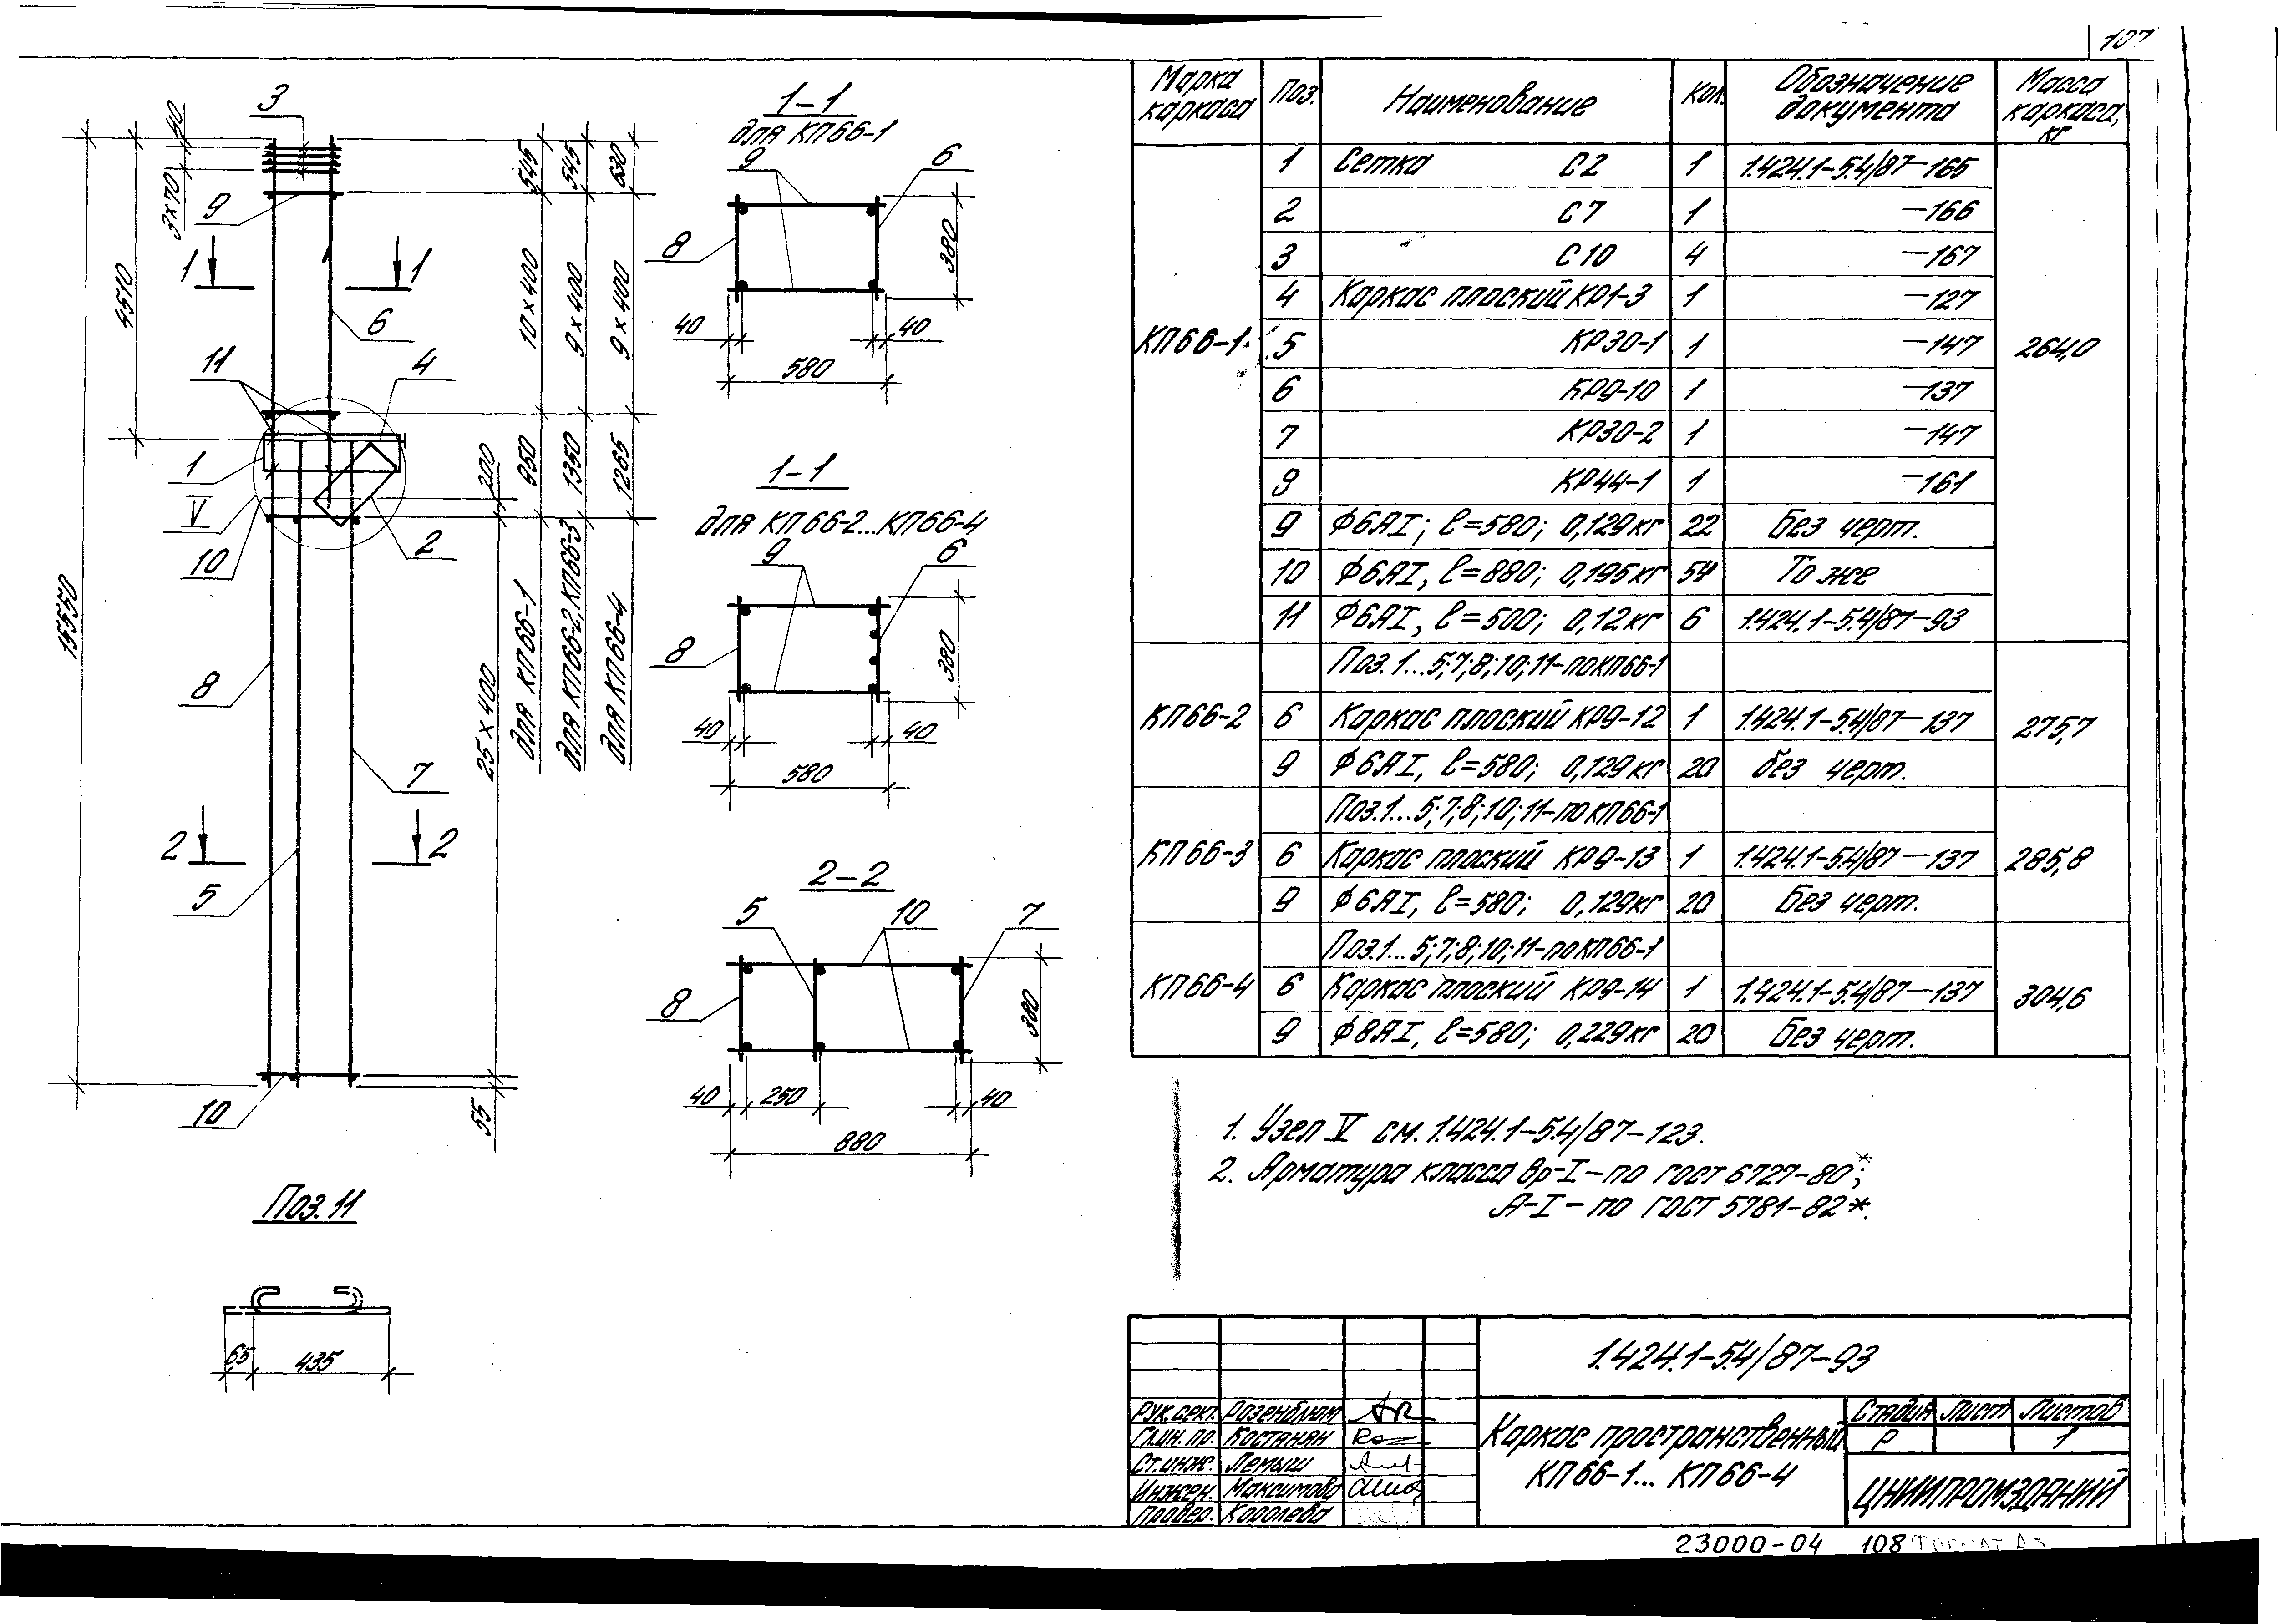 107
3
40
3×70
9
4510
1 1
6
11
4
1
V
10
2
15550
8
7
2 2
5
10
55
25×400
200
545
10×400
950
для КП66-1
545
9×400
1350
для КП66-2, КП66-3
630
9×400
1265
для КП66-4
1-1
для КП66-1
9 6
8
380
40 40
580
1-1
для КП66-2...КП66-4
9 6
8
380
40 40
580
2-2
5 10 7
8
380
40 250 40
880
Поз. 11
65 435
Марка каркаса Поз. Наименование Кол. Обозначение документа Масса каркаса, кг
КП66-1 264,0
1 Сетка С2 1 1.424.1-5.4/87-165
2 С7 1 -166
3 С10 4 -167
4 Каркас плоский КР1-3 1 -127
5 КР30-1 1 -147
6 КР9-10 1 -137
7 КР30-2 1 -147
8 КР44-1 1 -161
9 Ф6АI; ℓ=580; 0,129кг 22 Без черт.
10 Ф6АI, ℓ=880; 0,195кг 54 То же
11 Ф6АI, ℓ=500; 0,12кг 6 1.424.1-5.4/87-93
Поз. 1...5;7;8;10;11-по КП66-1
КП66-2 6 Каркас плоский КР9-12 1 1.424.1-5.4/87-137 275,7
9 Ф6АI, ℓ=580; 0,129кг 20 без черт.
Поз. 1...5;7;8;10;11-по КП66-1
КП66-3 6 Каркас плоский КР9-13 1 1.424.1-5.4/87-137 285,8
9 Ф6АI, ℓ=580; 0,129кг 20 Без черт.
Поз. 1...5;7;8;10;11-по КП66-1
КП66-4 6 Каркас плоский КР9-14 1 1.424.1-5.4/87-137 304,6
9 Ф8АI, ℓ=580; 0,229кг 20 Без черт.
1. Узел V см. 1.424.1-5.4/87-123.
2. Арматура класса Вр-I-по ГОСТ 6727-80*;
А-I-по ГОСТ 5781-82*.
1.424.1-5.4/87-93
Рук. сект. Розенблюм
Гл. ин. пр. Костанян
Ст. инж. Лемыш
Инжен. Максимова
Провер. Королева
Каркас пространственный
КП66-1... КП66-4
Стадия Лист Листов
Р 1
ЦНИИПРОМЗДАНИЙ
23000-04 108 Формат А3